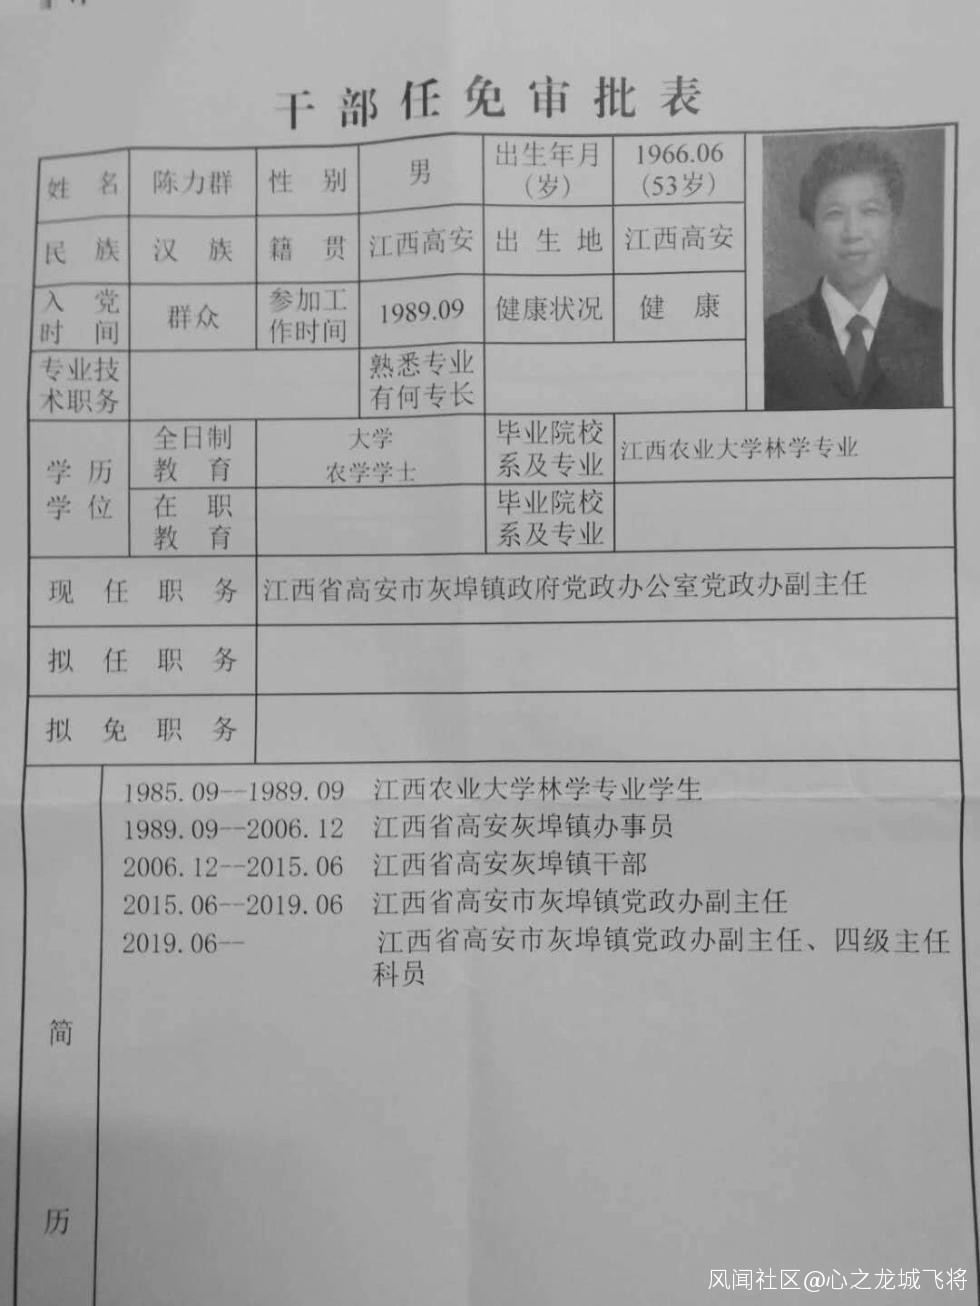 干部任免审批表
姓名 陈力群 性别 男 出生年月（岁） 1966.06（53岁）
民族 汉族 籍贯 江西高安 出生地 江西高安
入党时间 群众 参加工作时间 1989.09 健康状况 健康
专业技术职务 熟悉专业有何专长
学历学位 全日制教育 大学 农学学士 毕业院校系及专业 江西农业大学林学专业
在职教育 毕业院校系及专业
现任职务 江西省高安市灰埠镇政府党政办公室党政办副主任
拟任职务
拟免职务
简历
1985.09--1989.09 江西农业大学林学专业学生
1989.09--2006.12 江西省高安灰埠镇办事员
2006.12--2015.06 江西省高安灰埠镇干部
2015.06--2019.06 江西省高安市灰埠镇党政办副主任
2019.06-- 江西省高安市灰埠镇党政办副主任、四级主任
科员
风闻社区@心之龙城飞将